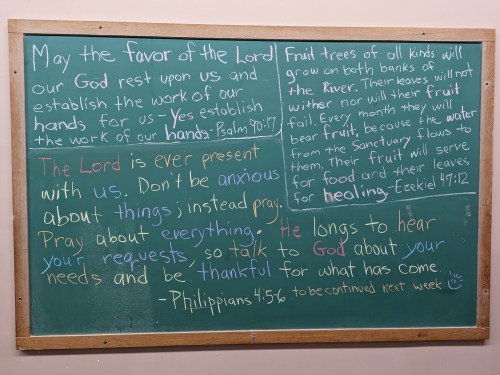 May the favor of the Lord
our God rest upon us and
establish the work of our
hands for us - Yes establish
the work of our hands. - Psalm 90:17
Fruit trees of all kinds will
grow on both banks of
the River. Their leaves will not
wither nor will their fruit
fail. Every month they will
bear fruit, because the water
from the Sanctuary flows to
them. Their fruit will serve
for food and their leaves
for healing. - Ezekiel 47:12
The Lord is ever present
with us. Don't be anxious
about things; instead pray.
Pray about everything. He longs to hear
your requests, so talk to God about your
needs and be thankful for what has come.
- Philippians 4:5-6 to be continued next week